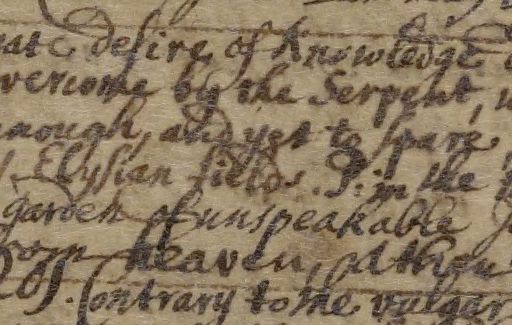 desire of Knowledge
vercome by the Serpent,
nough, and yet to spare,
Elysian fields. P: in the
garden of unspeakable
heaven,
Obs. Contrary to the vulger